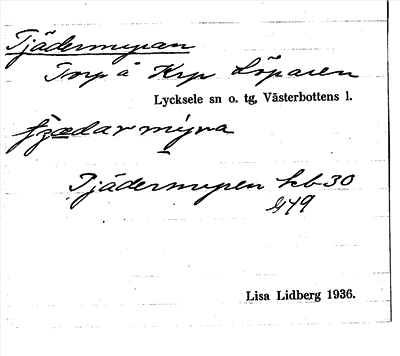 Tjädermyran
Torp å Krp Löparen
Lycksele sn o. tg, Västerbottens l.
Tjädermyren hb 30
Lisa Lidberg 1936.